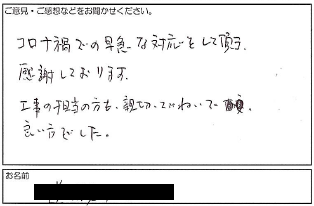 ご意見・ご感想などをお聞かせください。
コロナ禍での早急な対応をして頂き
感謝しております。
工事の担当の方も、親切、ていねいで
良い方でした。
お名前